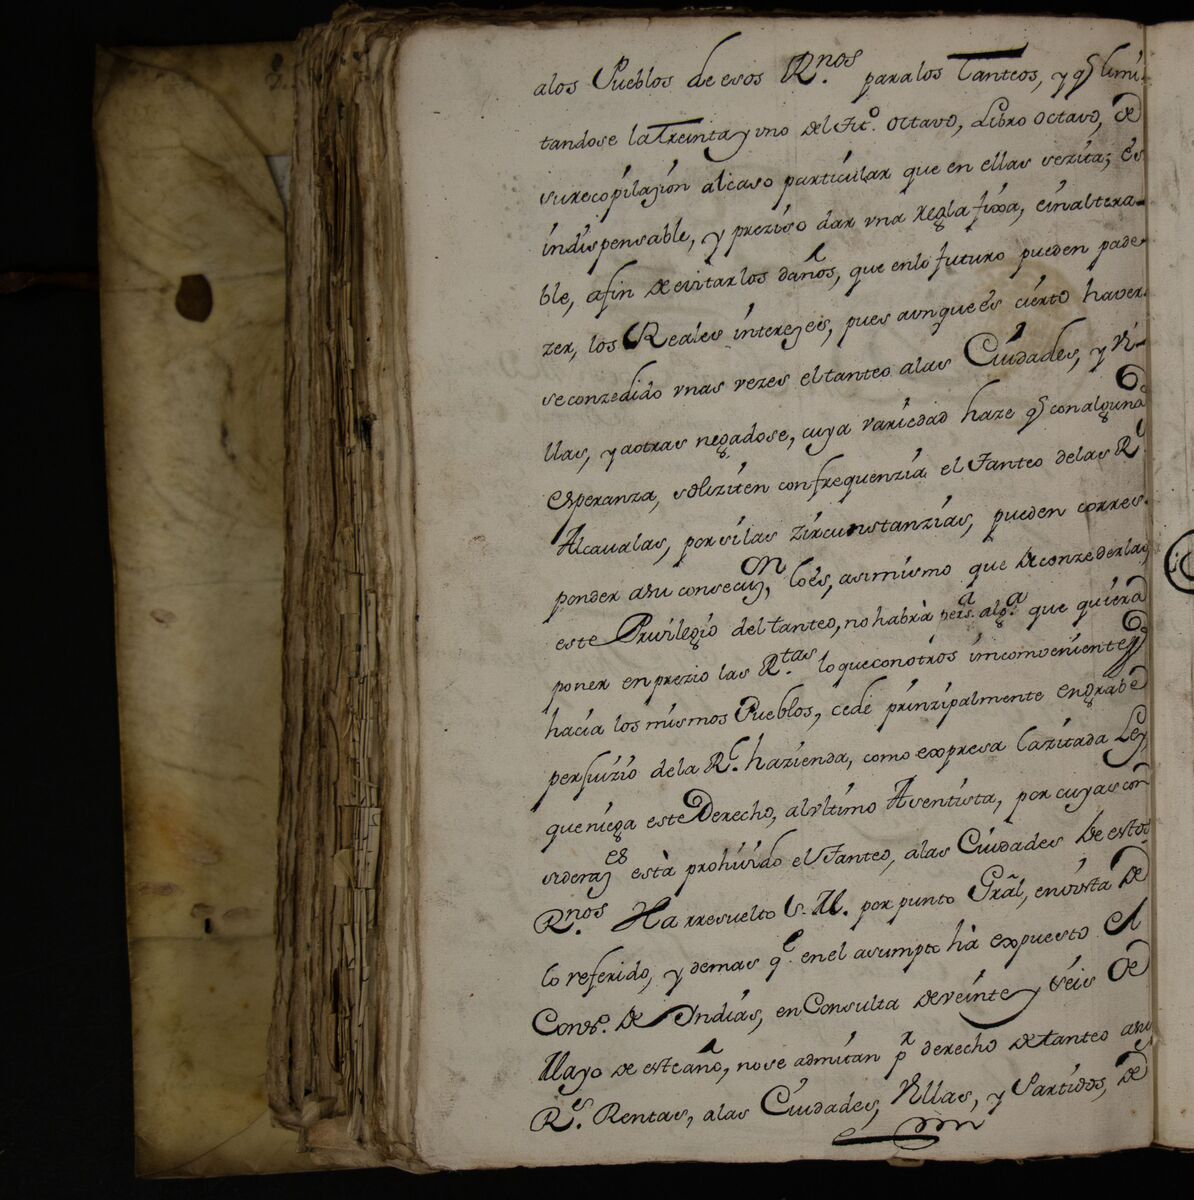 alos Pueblos de esos R.nos paralos Tanteos, y q̃ limi-
tandose la Treinta y vno del Tit.o octavo, Libro octavo, de
su recopilazion al caso particular que en ellas se zita; és
indispensable, y preziso dar vna regla fixa, é inaltera-
ble, afin de evitar los daños, que en lo futuro pueden pade-
zer, los Reales interezes, pues aunque és cierto haver-
se conzedido vnas vezes el tanteo alas Ciudades, y Vi-
llas, y aotras negadose, cuya variedad haze q̃ con alguna
esperanza, soliziten con frequenzia el Tanteo de las R.s
Alcaualas, por si las zircunstanzias, pueden corres-
ponder asu consecuz.on, lo és, asimismo que de conzederlas
este Privilegio del tanteo, no habrà pers.a alg.a que quiera
poner en prezio las R.tas lo que con otros imcomvenientes
hacia los mismos Pueblos, cede prinzipalmente en grabe
perjuizio de la R.l hazienda, como expresa la zitada Ley,
que niega este Derecho, al vltimo Asentista, por cuyas con
sideraz.es està prohiuido el Tanteo, alas Ciudades de estos
R.nos Ha rresuelto S. M. por punto Grãl, en vista de
lo referido, y demas q.e en el asumpto hà expuesto el
Cons.o de Yndias, en Consulta de veinte y seis de
Mayo de este año, no se admitan p.r derecho de tanteo a sus
R.s Rentas, alas Ciudades, Villas, y Partidos, de